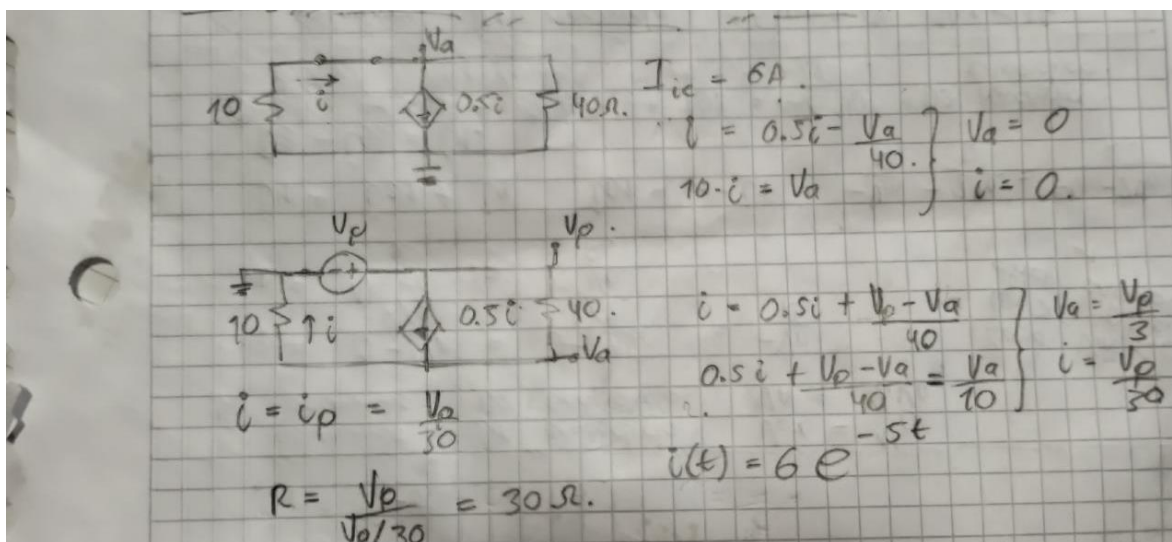 Va
10 i 0.5i 40Ω.
I_ic = 6A.
i = 0.5i - Va/40. } Va = 0
10·i = Va } i = 0.
Vp Vp.
10 ↑i 0.5i 40.
Va
i = 0.5i + (Vp - Va)/40 } Va = Vp/3
0.5i + (Vp - Va)/40 = Va/10 } i = Vp/30
i = ip = Vp/30
i(t) = 6 e^-5t
R = Vp/(Vp/30) = 30 Ω.